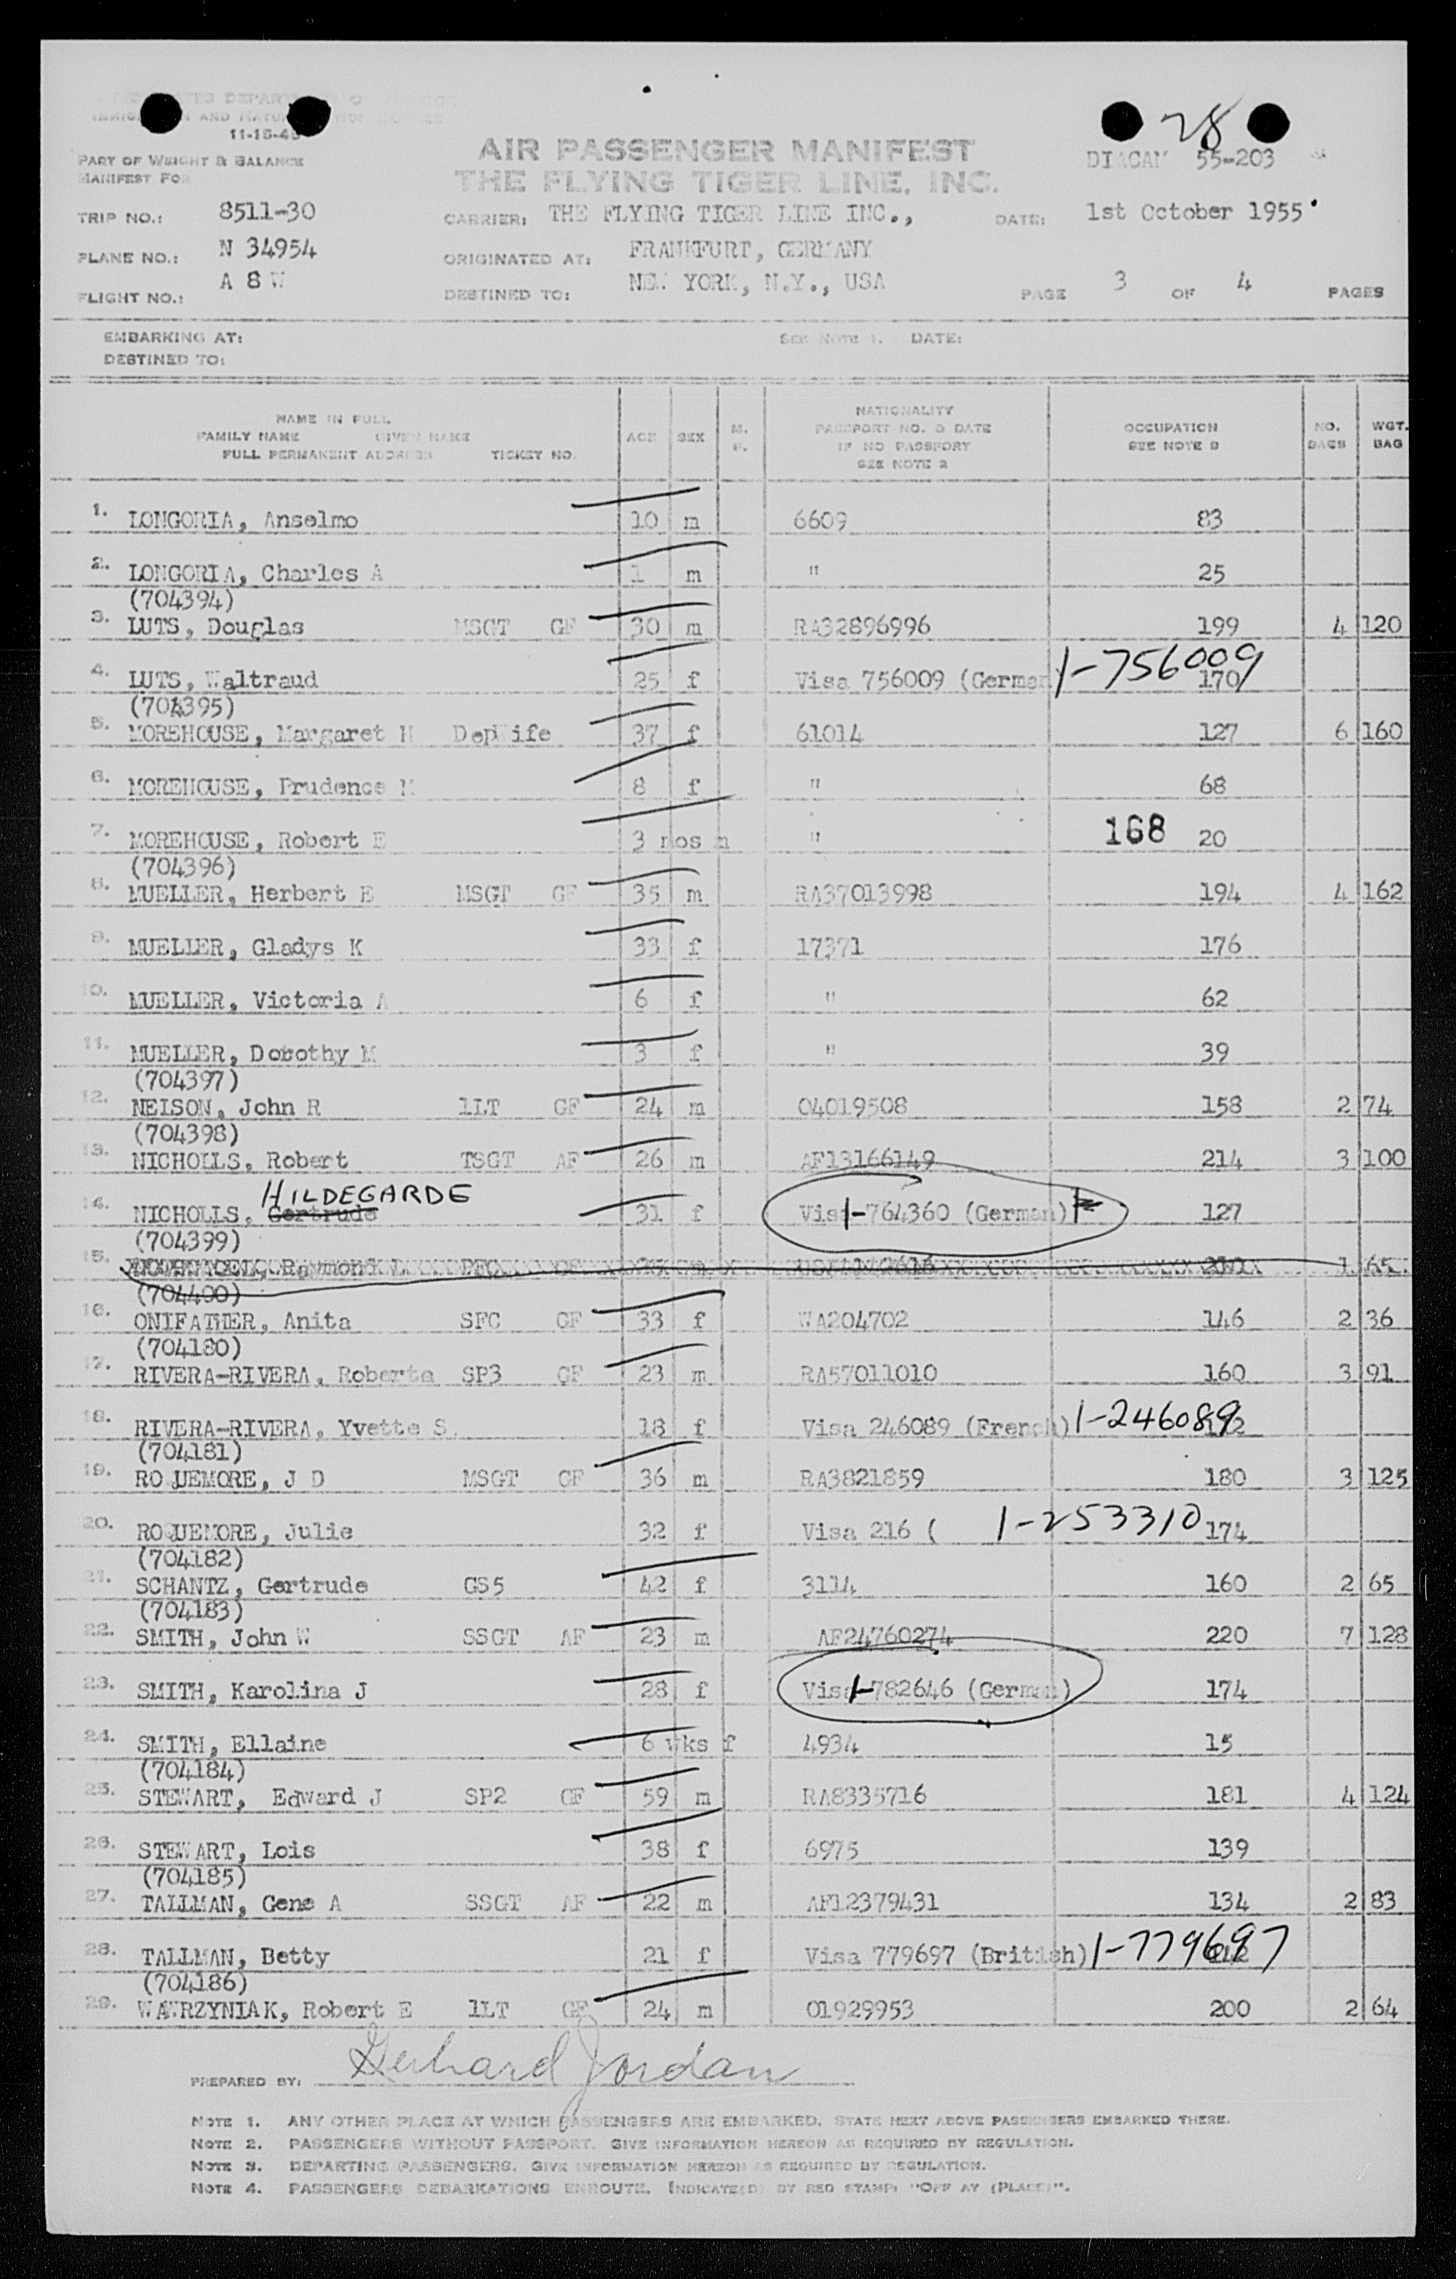 28
11-15-45
AIR PASSENGER MANIFEST
PART OF WEIGHT & BALANCE
MANIFEST FOR
55-203
THE FLYING TIGER LINE, INC.
TRIP NO.: 8511-30 CARRIER: THE FLYING TIGER LINE INC., DATE: 1st October 1955
PLANE NO.: N 34954 ORIGINATED AT: FRANKFURT, GERMANY
FLIGHT NO.: A 8 W DESTINED TO: NEW YORK, N.Y., USA PAGE 3 OF 4 PAGES
EMBARKING AT: SEE NOTE 1. DATE:
DESTINED TO:
NAME IN FULL
FAMILY NAME GIVEN NAME
FULL PERMANENT ADDRESS TICKET NO. AGE SEX
NATIONALITY
PASSPORT NO. & DATE
IF NO PASSPORT
SEE NOTE 2
OCCUPATION
SEE NOTE 3
NO. BAGS
WGT. BAG
1. LONGORIA, Anselmo 10 m 6609 83
2. LONGORIA, Charles A 1 m " 25
(704394)
3. LUTS, Douglas MSGT GF 30 m RA32896996 199 4 120
4. LUTS, Waltraud 25 f Visa 756009 (German) 1-756009 170
(704395)
5. MOREHOUSE, Margaret H DepWife 37 f 61014 127 6 160
6. MOREHOUSE, Prudence M 8 f " 68
7. MOREHOUSE, Robert E 3 mos m " 168 20
(704396)
8. MUELLER, Herbert E MSGT GF 35 m RA37013998 194 4 162
9. MUELLER, Gladys K 33 f 17371 176
10. MUELLER, Victoria A 6 f " 62
11. MUELLER, Dorothy M 3 f " 39
(704397)
12. NEISON, John R 1LT GF 24 m 04019508 158 2 74
(704398)
13. NICHOLLS, Robert TSGT AF 26 m AF13166149 214 3 100
HILDEGARDE
14. NICHOLLS, Gertrude 31 f Visa 1-764360 (German) 127
(704399)
15. Raymond L PFC 1 65
(704400)
16. ONIFATHER, Anita SFC GF 33 f WA204702 146 2 36
(704180)
17. RIVERA-RIVERA, Roberto SP3 GF 23 m RA57011010 160 3 91
18. RIVERA-RIVERA, Yvette S. 18 f Visa 246089 (French) 1-246089
(704181)
19. ROQUEMORE, J D MSGT GF 36 m RA3821859 180 3 125
20. ROQUEMORE, Julie 32 f Visa 216 ( 1-253310 174
(704182)
21. SCHANTZ, Gertrude GS5 42 f 3114 160 2 65
(704183)
22. SMITH, John W SSGT AF 23 m AF24760274 220 7 128
23. SMITH, Karolina J 28 f Visa 1-782646 (German) 174
24. SMITH, Ellaine 6 wks f 4934 15
(704184)
25. STEWART, Edward J SP2 GF 59 m RA8335716 181 4 124
26. STEWART, Lois 38 f 6975 139
(704185)
27. TALLMAN, Gene A SSGT AF 22 m AF12379431 134 2 83
28. TALLMAN, Betty 21 f Visa 779697 (British) 1-779697
(704186)
29. WAWRZYNIAK, Robert E 1LT GF 24 m 01929953 200 2 64
PREPARED BY: Gerhard Jordan
NOTE 1. ANY OTHER PLACE AT WHICH PASSENGERS ARE EMBARKED, STATE NEXT ABOVE PASSENGERS EMBARKED THERE.
NOTE 2. PASSENGERS WITHOUT PASSPORT. GIVE INFORMATION HEREON AS REQUIRED BY REGULATION.
NOTE 3. DEPARTING PASSENGERS. GIVE INFORMATION HEREON AS REQUIRED BY REGULATION.
NOTE 4. PASSENGERS DEBARKATIONS ENROUTE. INDICATE(D) BY RED STAMP: "OFF AT (PLACE)".